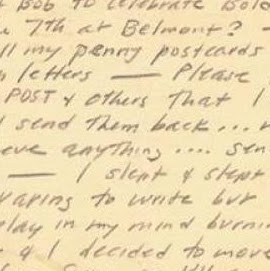 Bob to celebrate
7th at Belmont? -
my penny postcards
letters — Please
POST & others that I
send them back...
anything.... sen
— I slept & slept
to write but
play in my mind burnin
& I decided to move